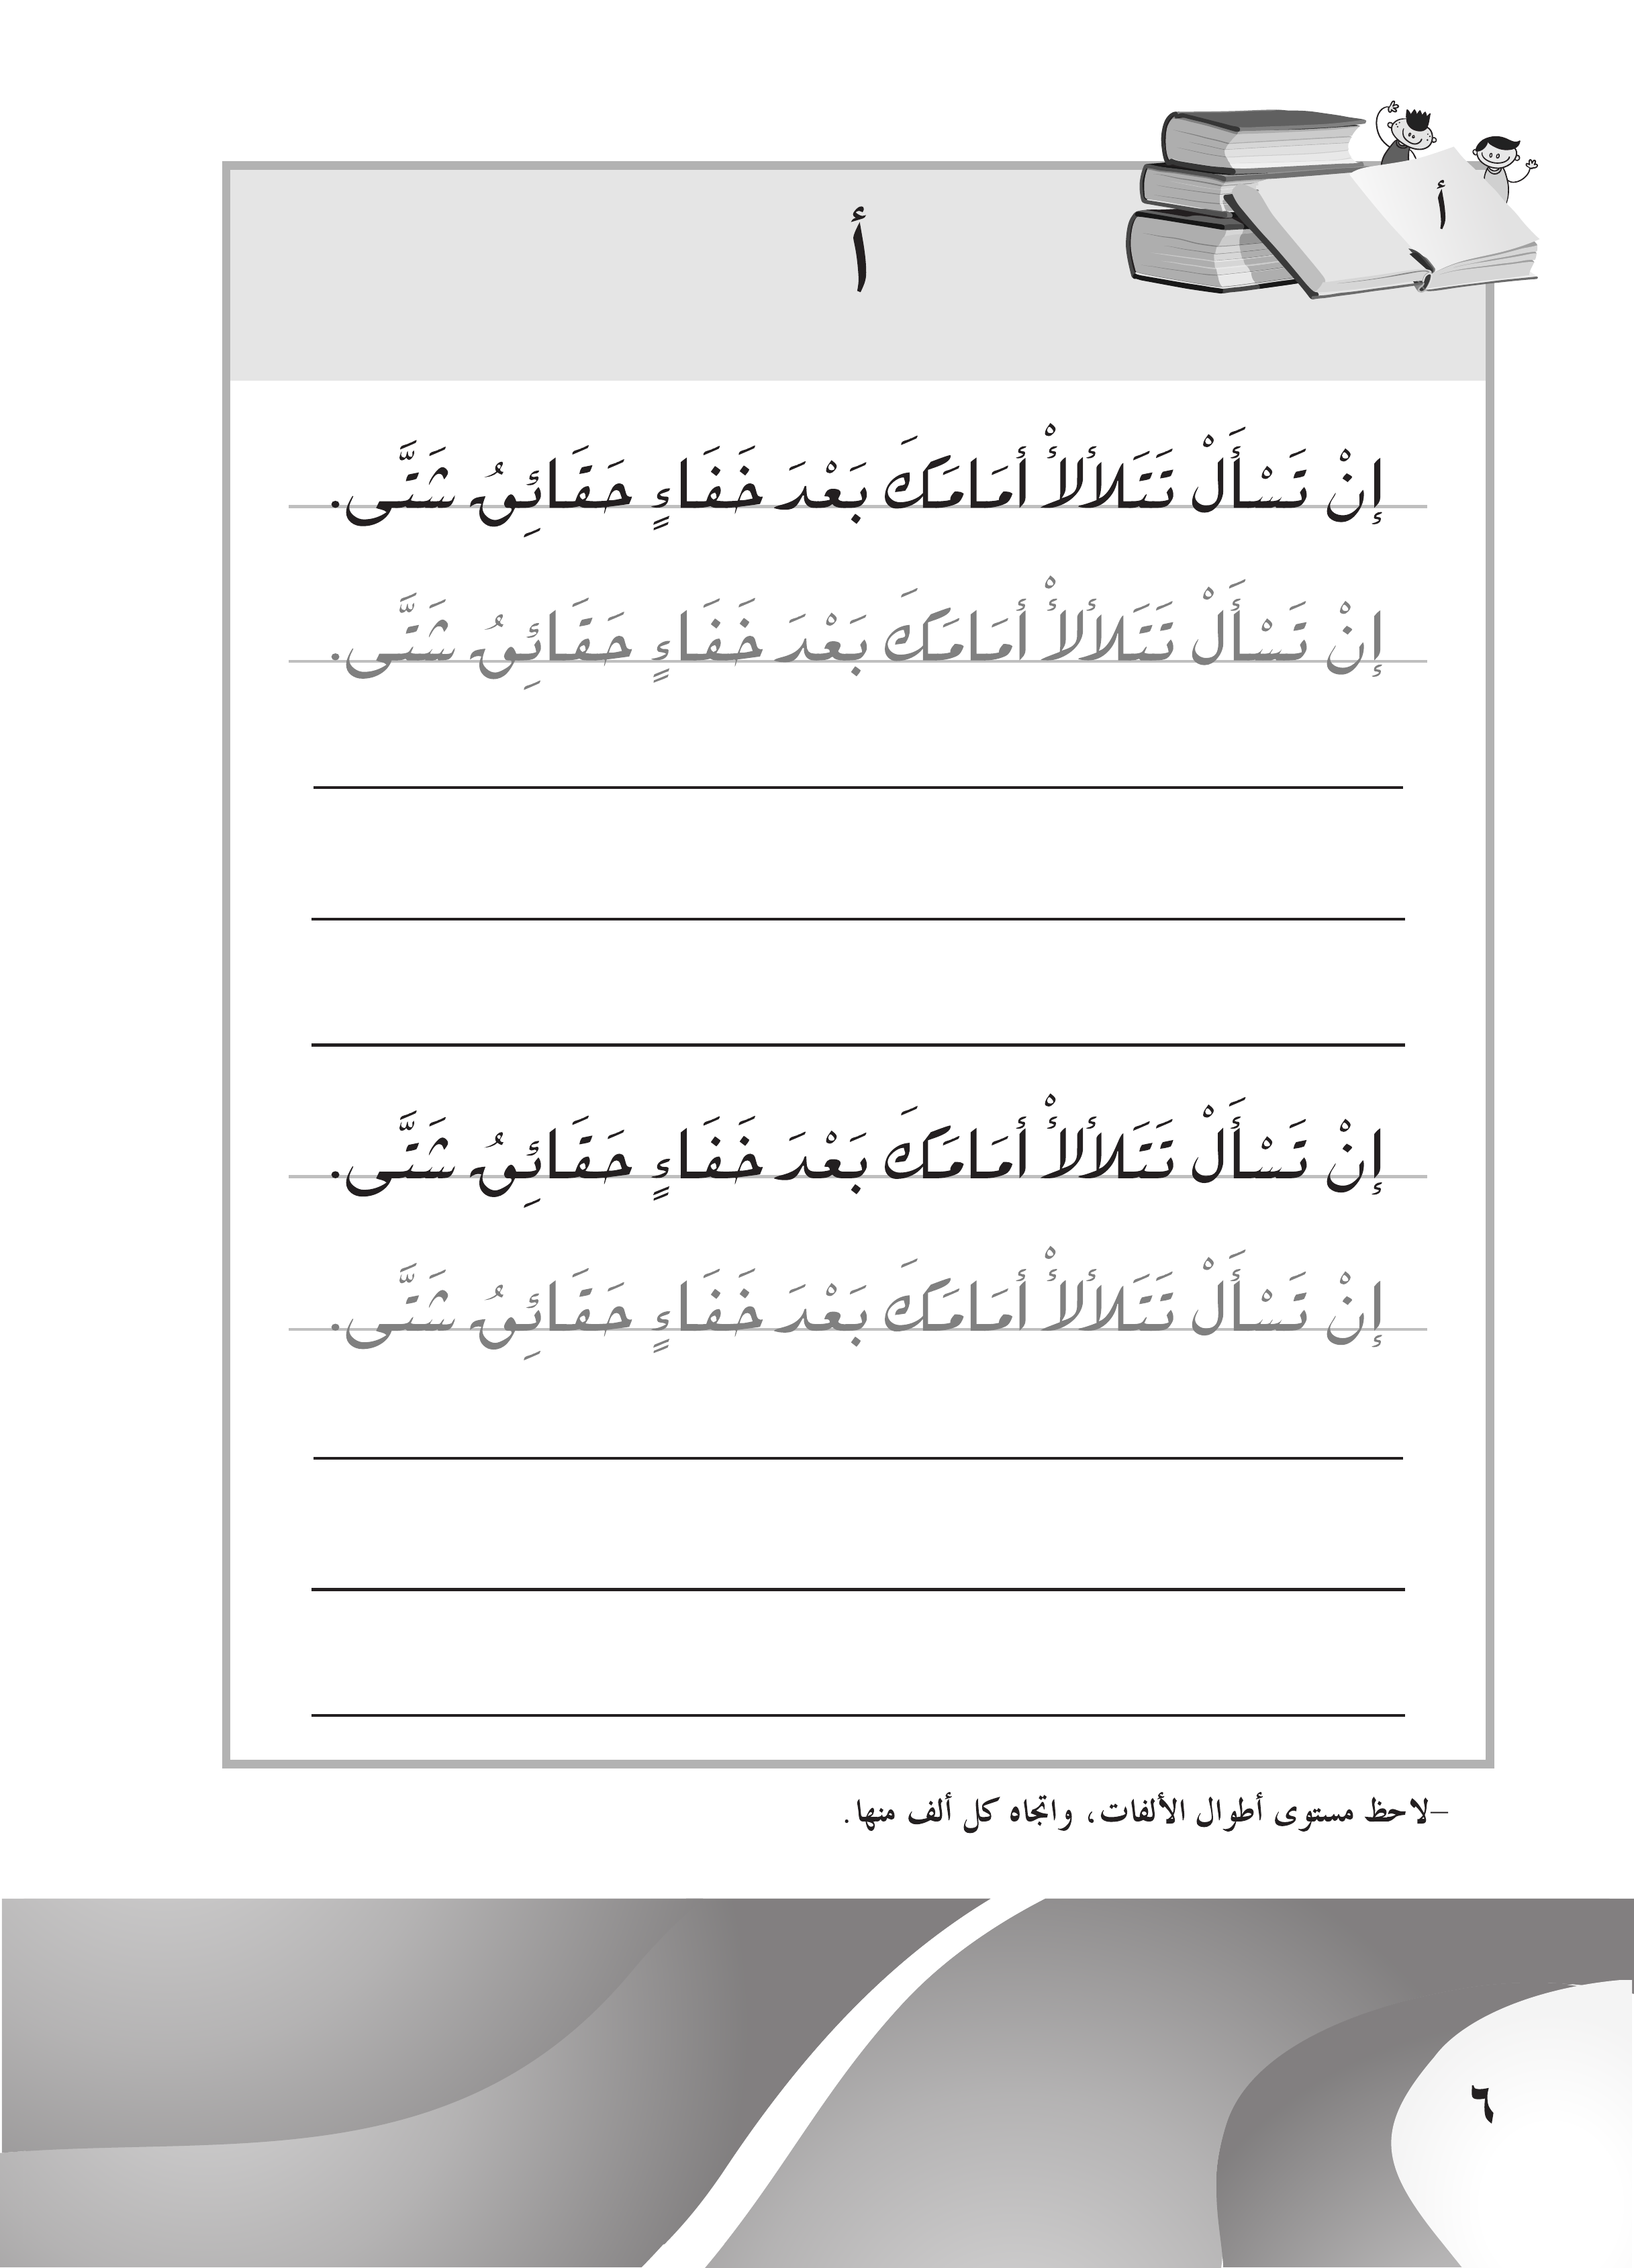 أ
أ
إِنْ تَسْأَلْ تَتَلَألأْ أمَامَكَ بَعْدَ خَفَاءٍ حَقَائِقُ شَتَّى.
إِنْ تَسْأَلْ تَتَلَألأْ أمَامَكَ بَعْدَ خَفَاءٍ حَقَائِقُ شَتَّى.
إِنْ تَسْأَلْ تَتَلَألأْ أمَامَكَ بَعْدَ خَفَاءٍ حَقَائِقُ شَتَّى.
إِنْ تَسْأَلْ تَتَلَألأْ أمَامَكَ بَعْدَ خَفَاءٍ حَقَائِقُ شَتَّى.
–لاحظ مستوى أطوال الألفات، واتجاه كل ألف منها.
٦